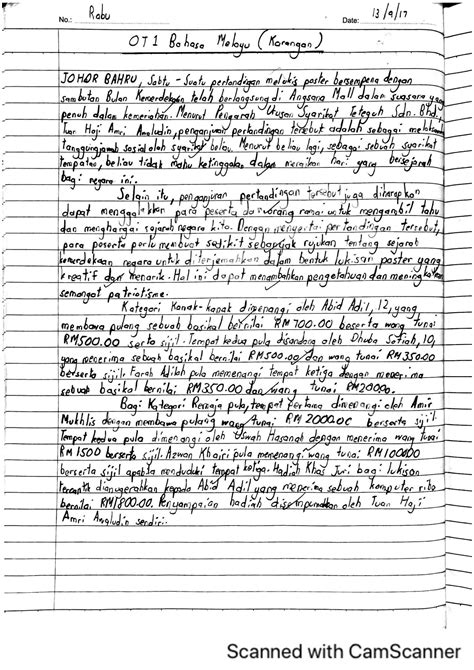 No.: Rabu Date: 13/9/17
OT1 Bahasa Melayu (Karangan)
JOHOR BAHRU, Sabtu - Suatu pertandingan melukis poster bersempena dengan
sambutan Bulan Kemerdekaan telah berlangsung di Angsana Mall dalam suasana yang
penuh dalam kemeriahan. Menurut Pengarah Urusan Syarikat Teteguh Sdn. Bhd.,
Tuan Haji Amri Amaludin, penganjuran pertandingan tersebut adalah sebagai
tanggungjawab sosial oleh syarikat beliau. Menurut beliau lagi, sebagai sebuah syarikat
tempatan, beliau tidak mahu ketinggalan dalam meraikan hari yang bersejarah
bagi negara ini.
Selain itu, penganjuran pertandingan tersebut juga diharapkan
dapat menggalakkan para peserta dan orang ramai untuk mengambil tahu
dan menghargai sejarah negara kita. Dengan menyertai pertandingan tersebut,
para peserta perlu membuat sedikit sebanyak rujukan tentang sejarah
kemerdekaan negara untuk diterjemahkan dalam bentuk lukisan poster yang
kreatif dan menarik. Hal ini dapat menambahkan pengetahuan dan meningkatkan
semangat patriotisme.
Kategori Kanak-kanak dimenangi oleh Abid Adil, 12, yang
membawa pulang sebuah basikal bernilai RM700.00 beserta wang tunai
RM500.00 serta sijil. Tempat kedua pula disandang oleh Dhuha Solilah, 10,
yang menerima sebuah basikal bernilai RM500.00 dan wang tunai RM350.00
berserta sijil. Farah Adilah pula memenangi tempat ketiga dengan menerima
sebuah basikal bernilai RM350.00 dan wang tunai RM200.00.
Bagi Kategori Remaja pula, tempat pertama dimenangi oleh Amir
Mukhlis dengan membawa pulang wang tunai RM2000.00 berserta sijil.
Tempat kedua pula dimenangi oleh Uswah Hasanah dengan menerima wang tunai
RM1500 berserta sijil. Azwan Khairi pula memenangi wang tunai RM1000.00
berserta sijil apabila menduduki tempat ketiga. Hadiah Khas Juri bagi lukisan
tercantik dianugerahkan kepada Abid Adil yang menerima sebuah komputer riba
bernilai RM1800.00. Penyampaian hadiah disempurnakan oleh Tuan Haji
Amri Amaludin sendiri.
Scanned with CamScanner